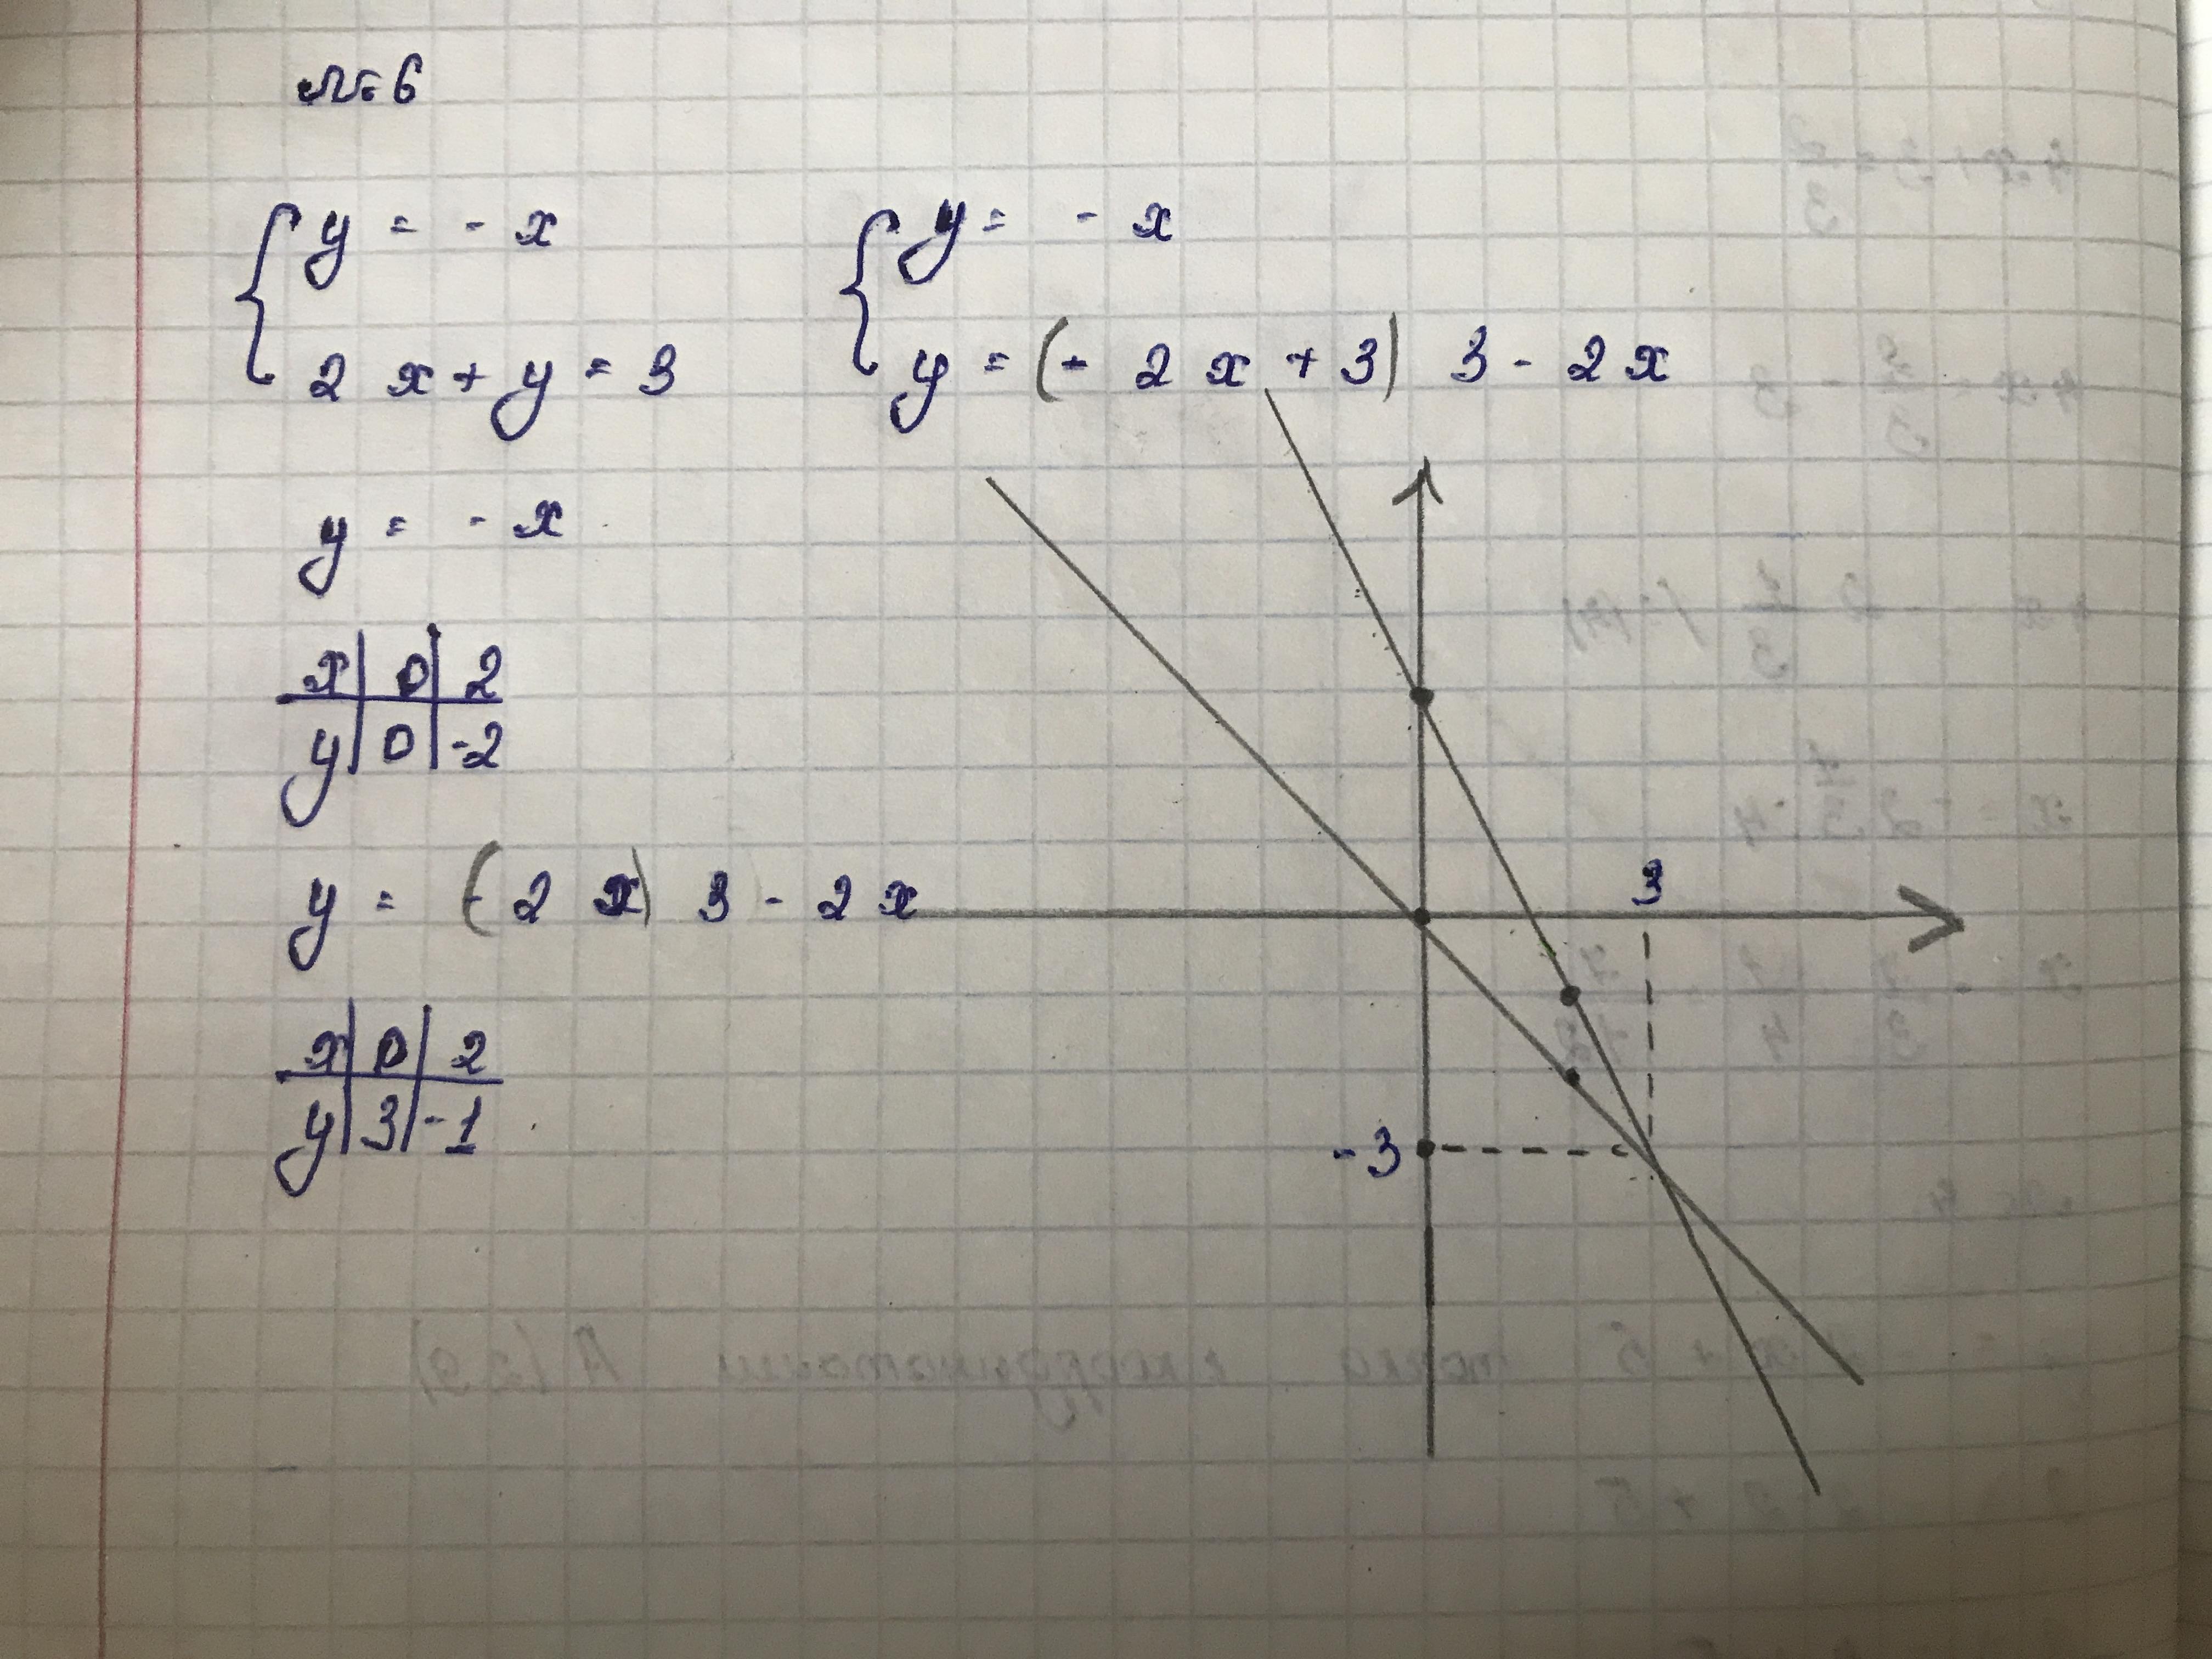 № 6
{ y = - x { y = - x
2 x + y = 3 y = (- 2 x + 3) 3 - 2 x
y = - x
x | 0 | 2
y | 0 | -2
y = (- 2 x) 3 - 2 x
3
x | 0 | 2
y | 3 | -1
-3